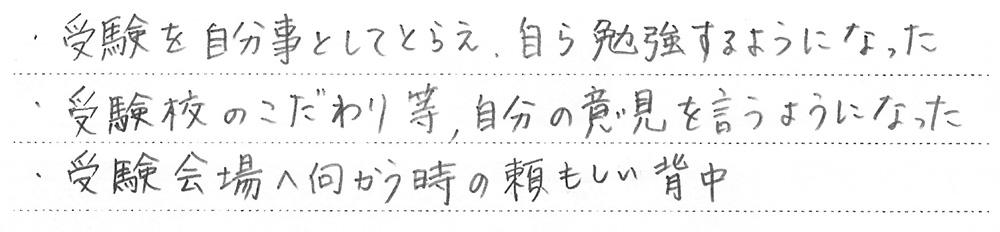 ・受験を自分事としてとらえ、自ら勉強するようになった
・受験校のこだわり等,自分の意見を言うようになった
・受験会場へ向かう時の頼もしい背中